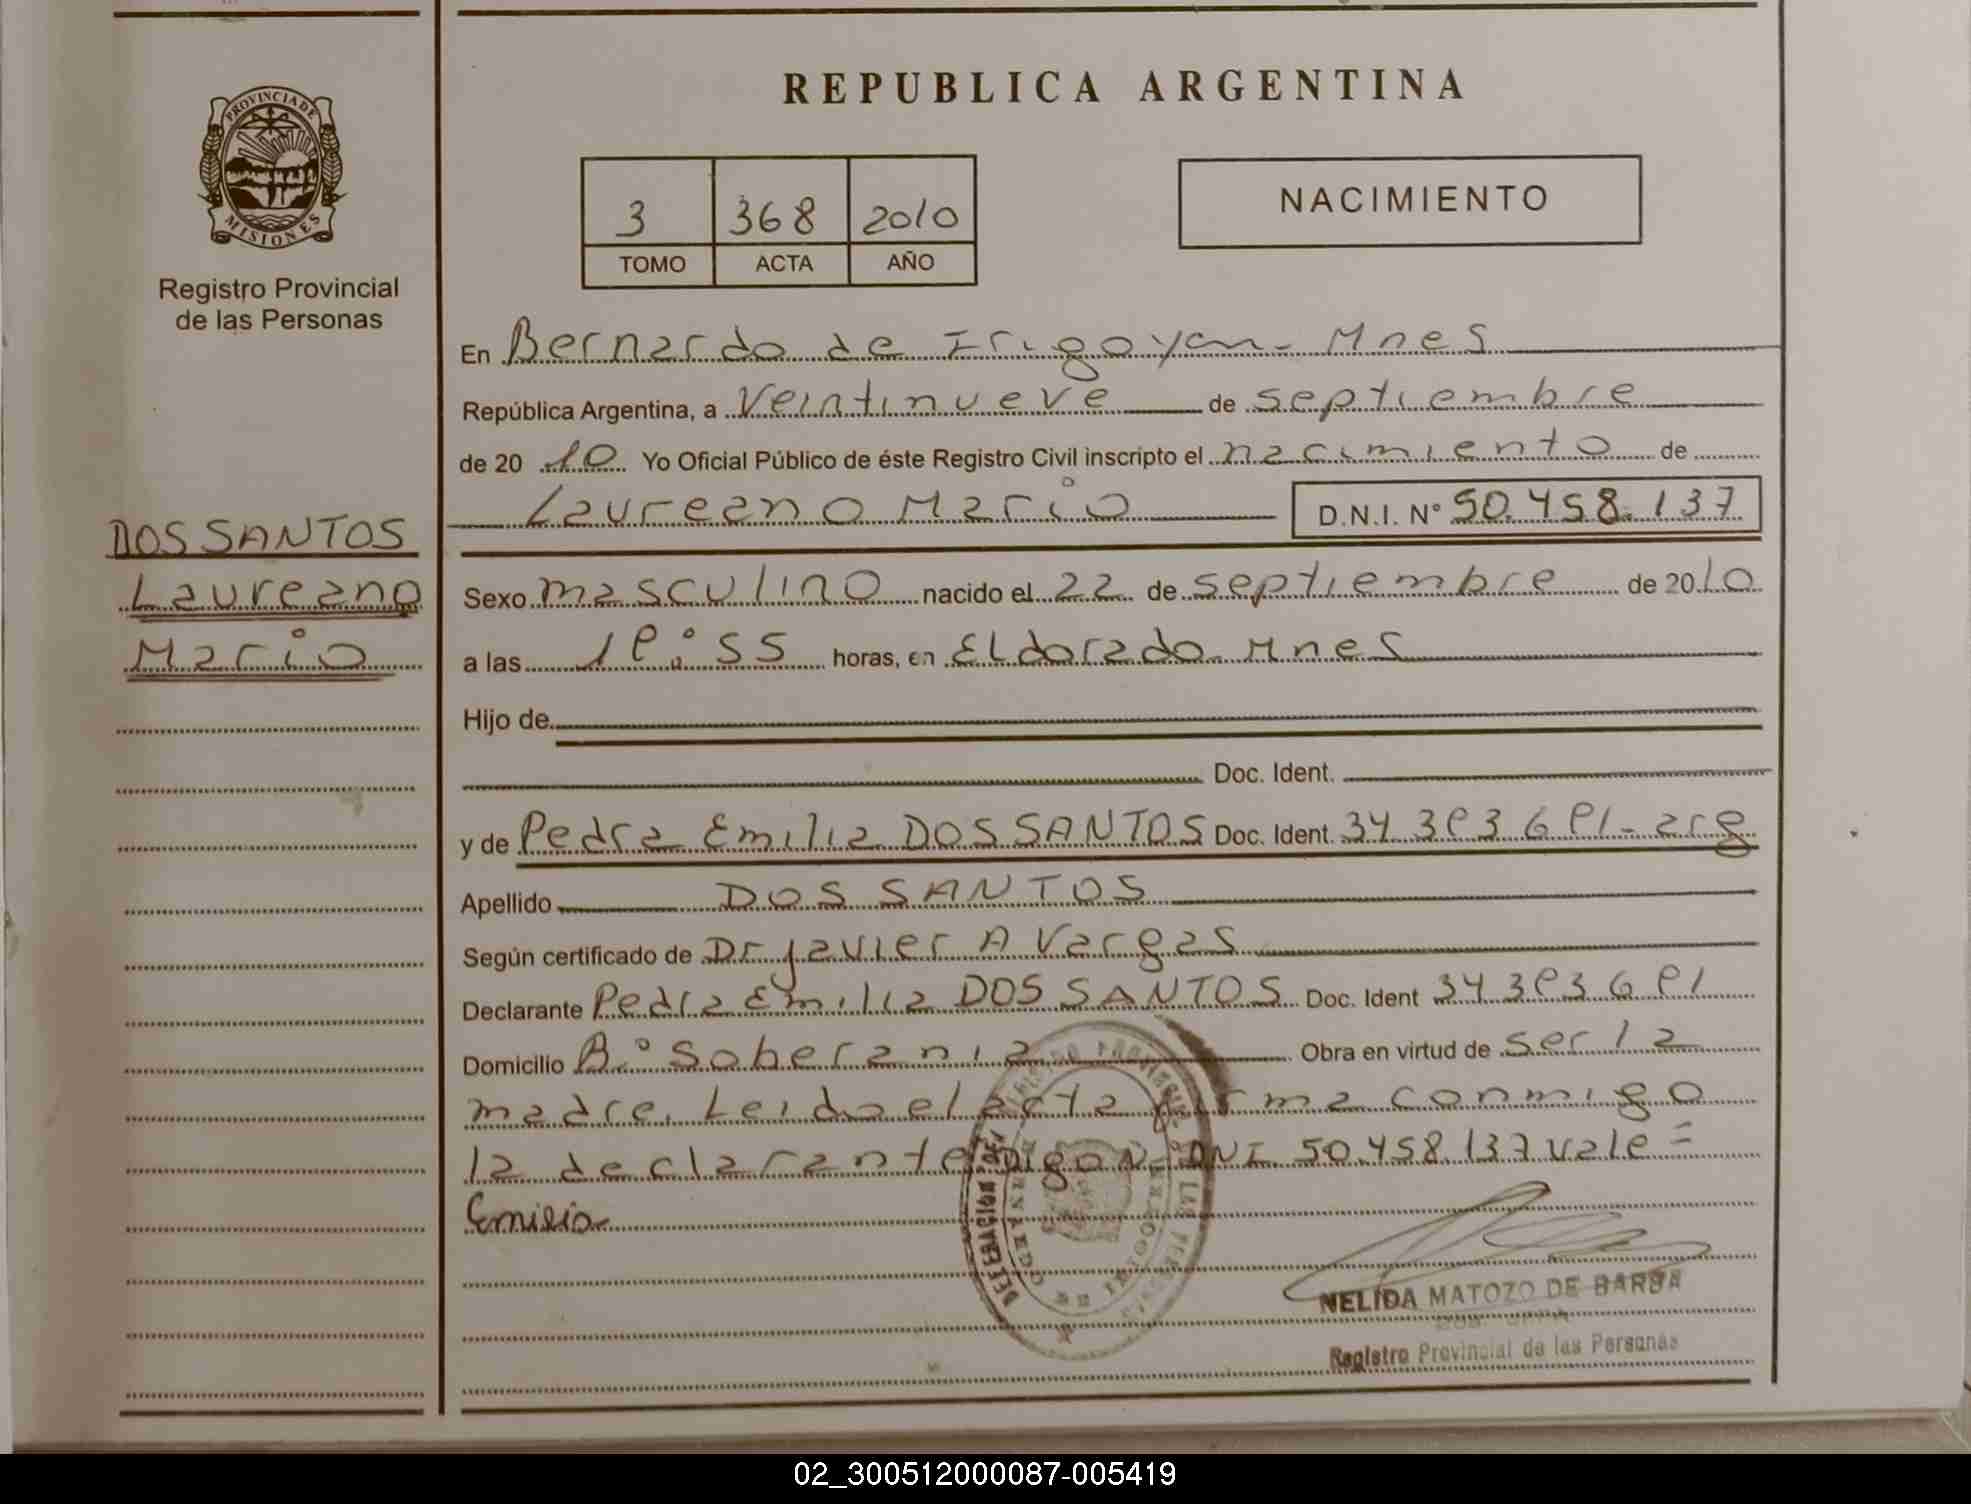 REPUBLICA ARGENTINA
PROVINCIA DE
MISIONES
Registro Provincial
de las Personas
3 368 2010
TOMO ACTA AÑO
NACIMIENTO
DOS SANTOS
Laureano
Mario
En Bernardo de Irigoyen - Mnes
República Argentina, a Veintinueve de septiembre
de 20 10 Yo Oficial Público de éste Registro Civil inscripto el nacimiento de
Laureano Mario D.N.I. N° 50.458.137
Sexo masculino nacido el 22 de septiembre de 2010
a las 18:55 horas, en Eldorado Mnes
Hijo de
Doc. Ident.
y de Pedra Emilia DOS SANTOS Doc. Ident. 34 383 681 - arg
Apellido DOS SANTOS
Según certificado de Dr Javier A Vargas
Declarante Pedra Emilia DOS SANTOS Doc. Ident 34 383 681
Domicilio B° Soberania Obra en virtud de ser la
madre. Leido el acta firma conmigo
la declarante Digo N DNI 50.458.137 Vale =
Emilia
NELIDA MATOZO DE BARBA
Registro Provincial de las Personas
02_300512000087-005419